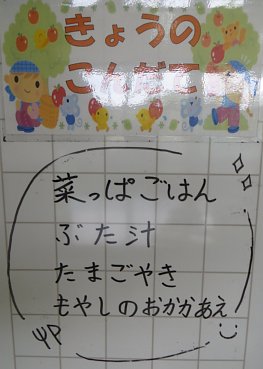 きょうの
こんだて
菜っぱごはん
ぶた汁
たまごやき
もやしのおかかあえ